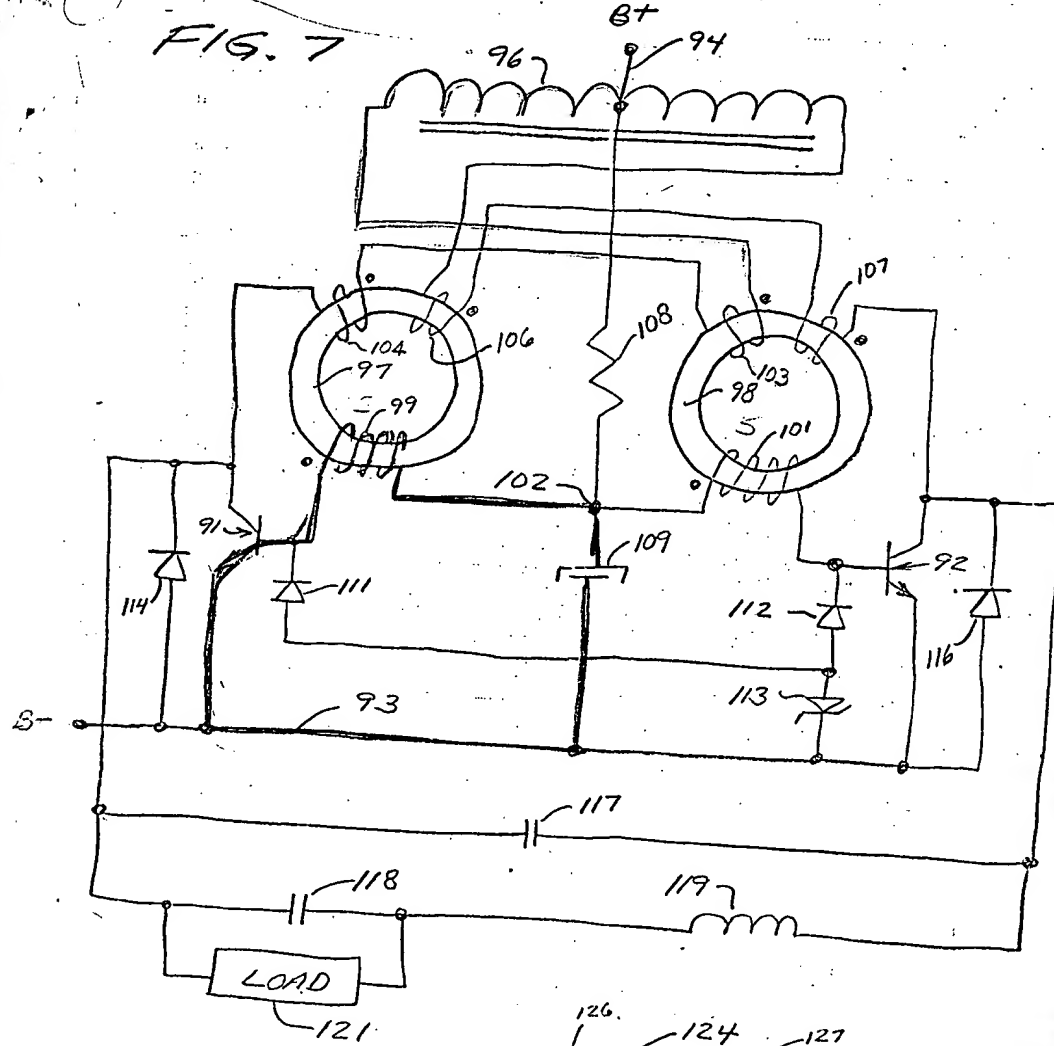 FIG. 7
B+
94
96
107
108
104
106
97
103
98
99
101
102
91
109
92
111
114
112
116
113
B-
93
117
118
119
LOAD
121
126.
124
127